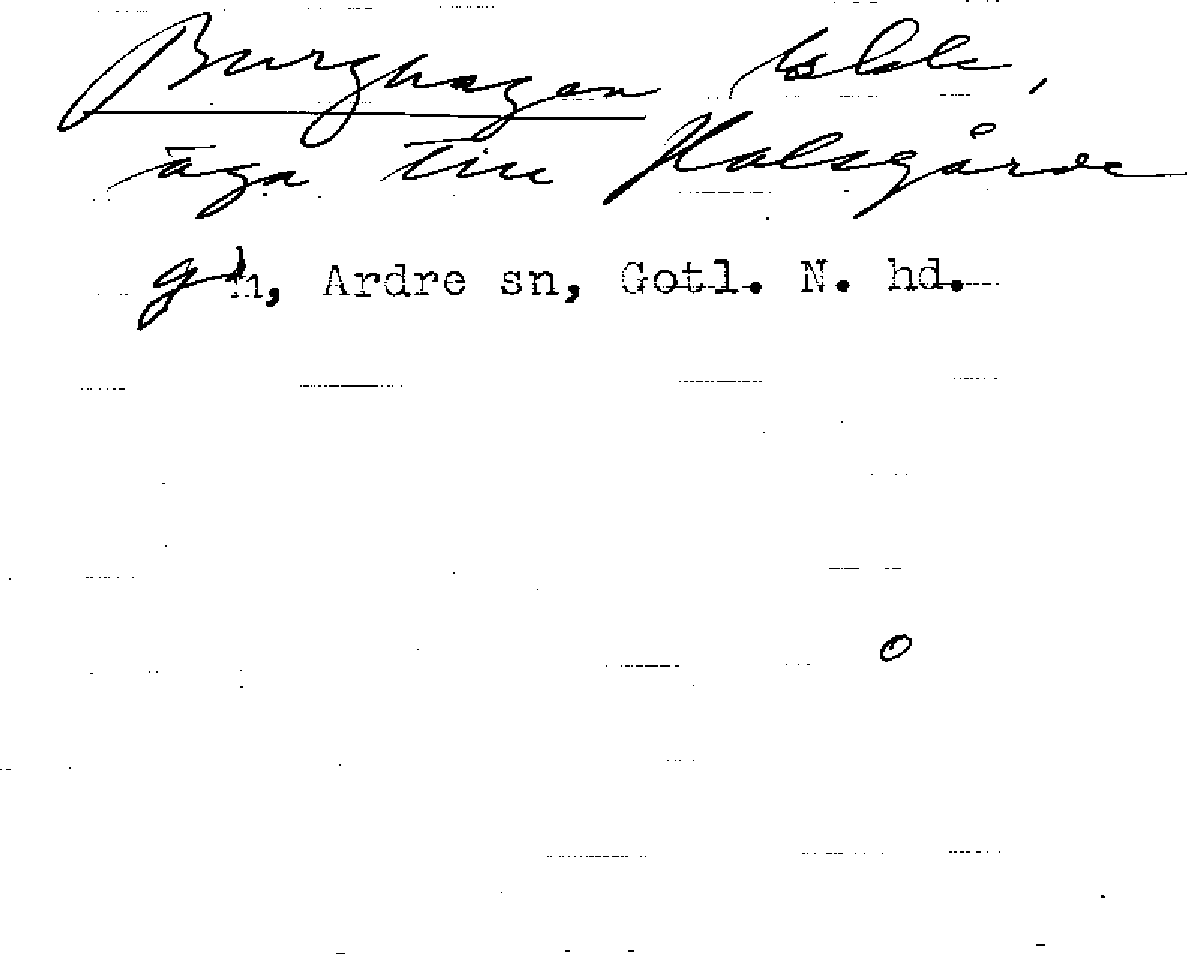 Burghagen bSkk,
äga till Halsgårde
gd n, Ardre sn, Gotl. N. hd.